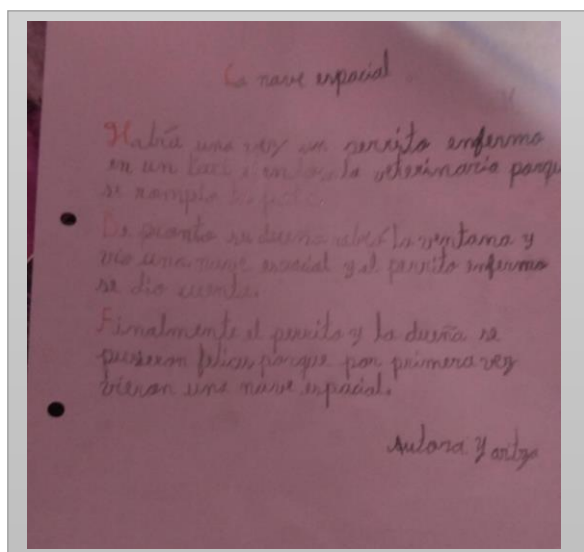 La nave espacial
Había una vez un perrito enfermo
en un veterinario porque
se rompió
De pronto su dueña abrió la ventana y
vio una nave espacial y el perrito enfermo
se dio cuenta.
Finalmente el perrito y la dueña se
pusieron felices porque por primera vez
vieron una nave espacial.
Autora Yaritza